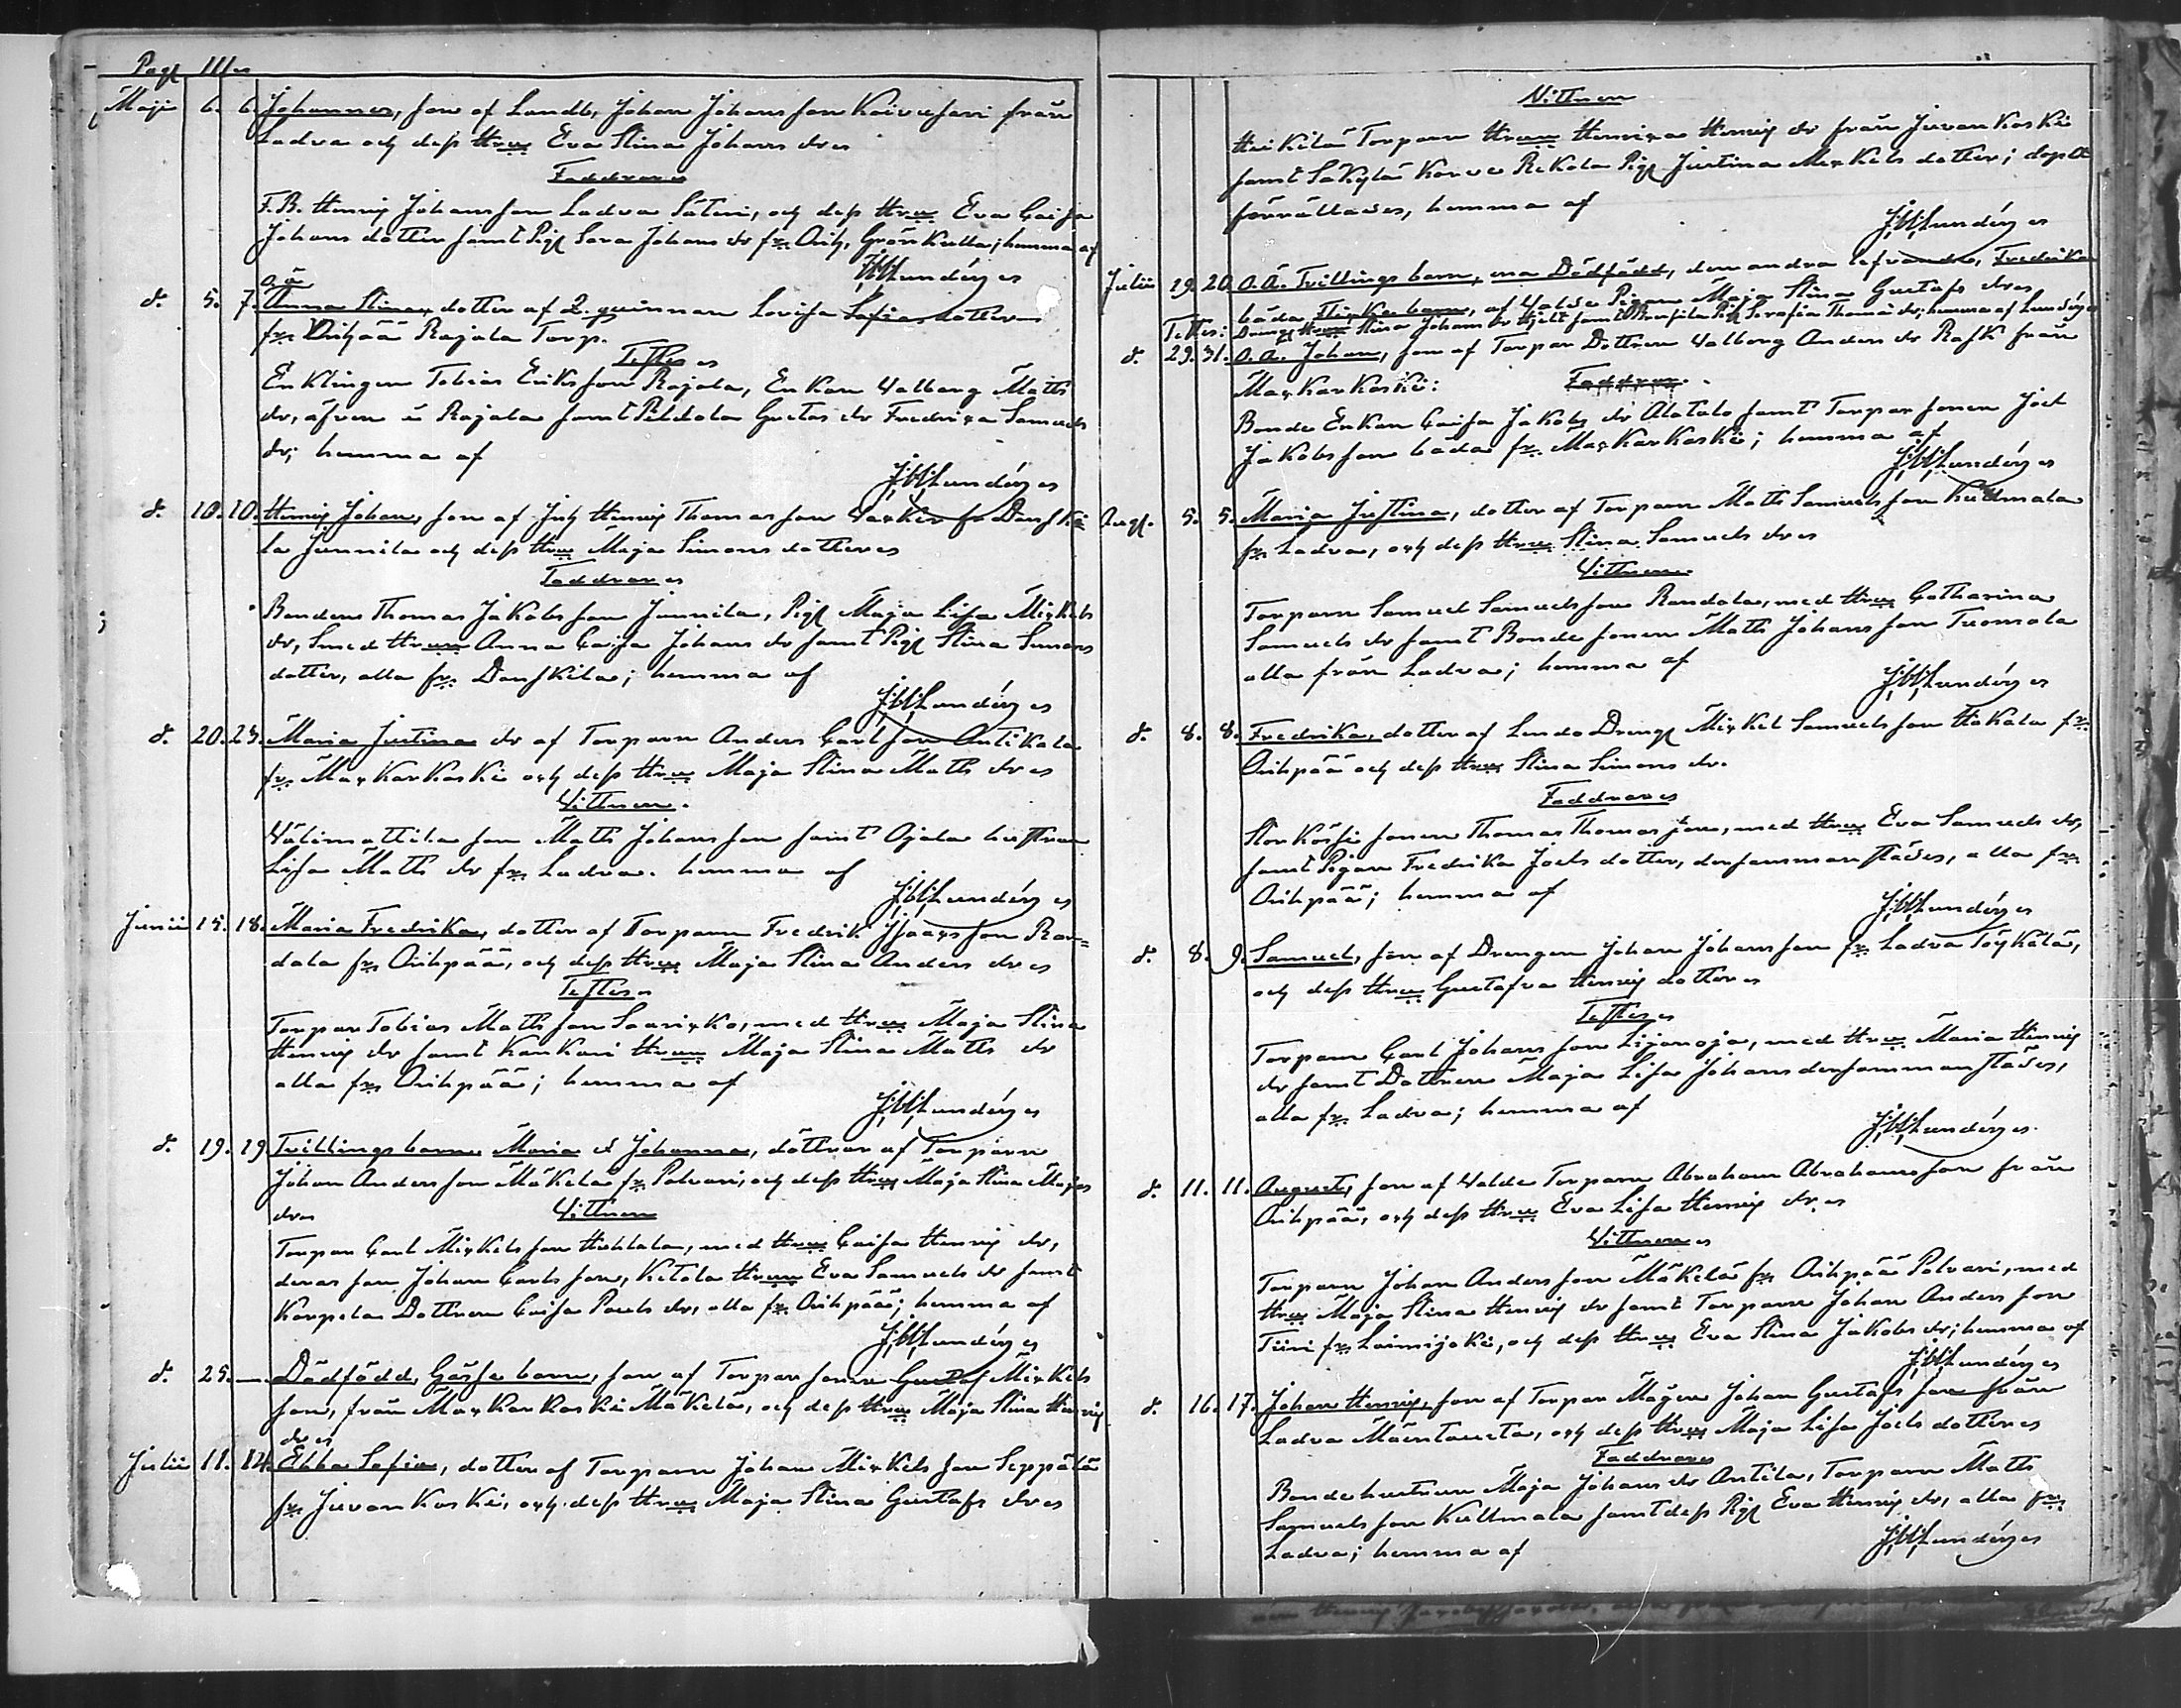 Pag 111
Maji 6. 6. Johannes, son af Landb. Johan Johansson Koivusari från
Ladva och dess Hru Eva Stina Johans dr
Faddrar
F.B. Henrig Johansson Ladva Sateri, och dess Hru Eva Caisa
Johans dotter samt Pig Sara Johans dr fr. Orih. Grön Kulla; hemma af
JWLundén
d. 5. 7. o.ä. Anna Stina, dotter af Q. quinnan Lovisa Sofias dotter
fr. Orihpää Rajala Torp.
Testes
Enklingen Tobias Eriksson Rajala, Enkan Walborg Matts
dr, äfven i Rajala samt Peldola Gustas dr Fredrika Samuels
dr; hemma af
JWLundén
d. 10. 10. Henrig Johan, son af Inh. Henrig Thomasson fr Danski
la Junnila och dess Hru Maja Simons dotter
Faddrar
Bonden Thomas Jakobsson Junnila, Pig Maja Lisa Mickels
dr, Smed Hrun Anna Caisa Johans dr samt Pig Stina Simons
dotter, alla fr. Danskila; hemma af
JWLundén
d. 20. 23. Maria Justina dr af Torparn Anders Carlsson Antikala
fr. Marxkarkoski och dess Hru Maja Stina Matts dr
Vittnen.
Välimattila son Matts Johansson samt Ojala hustrun
Lisa Matts dr fr. Ladva. hemma af
JWLundén
Junii 15. 18. Maria Fredrika, dotter af Torparn Fredrik Isaacsson Ran=
dala fr. Orihpää, och dess Hru Maja Stina Anders dr
Testes
Torpar Tobias Mattsson Saarixko, med Hru Maja Stina
Henrig dr samt Kankari Hrun Maja Stina Matts dr
alla fr. Orihpää; hemma af
JWLundén
d. 19. 19. Tvillings barn Maria & Johanna, döttrar af Torparn
Johan Andersson Mäkelä fr. Polvari, och dess Hru Maja Stina
dr Vittnen
Torpar Carl Mickelsson Huhtala, med Hru Caisa Henrig dr,
deras son Johan Carlsson, Ketola Hrun Eva Samuels dr samt
Korpela Dottren Caisa Pauls dr, alla fr. Orihpää; hemma af
JWLundén
d. 25. — Dödfödd Gosse barn, son af Torparsonen Gustaf Mickels
son, från Marxkarkoski Mäkelä, och dess Hru Maja Stina Henrig
dr
Julii 11. 14. Ebba Sofia, dotter af Torparn Johan Mickelsson Seppälä
fr. Juvankoski, och dess Hru Maja Stina Gustafs dr
Vittnen
Heikilä Torparn Hrun Henrica Henrig dr från Juvankoski
samt Säkylä Korve Rekola Pig Justina Mickels dotter; dopet
förrättades, hemma af
JWLundén
Julii 19. 20. O.Ä. Tvillings barn, ena Dödfödd, den andra lefvande, Fredrika
båda Flicke barn, af Pigan Maja Stina Gustafs dr
Testes: Drengs Hrun Stina Johans dr Hjelt samt Pig Serafia Thomä dr; hemma af Lundén
d. 29. 31. O.Ä. Johan, son af Torpar Dottren Walborg Anders dr Rask från
Marxkarkoski: Faddrar
Bonde Enkan Caisa Jakobs dr Alatalo samt Torparsonen Joel
Jakobsson båda fr. Marxkarkoski; hemma af
JWLundén
Aug. 5. 5. Maria Justina, dotter af Torparn Matts Samuelsson Kullmala
fr. Ladva, och dess Hru Stina Samuels dr
Vittnen
Torparn Samuel Samuelsson Randala, med Hru Catharina
Samuels dr samt Bondesonen Matts Johansson Tuomola
alla från Ladva; hemma af
JWLundén
d. 8. 8. Fredrika, dotter af Lands Dreng Mickel Samuelsson Hakala fr.
Orihpää och dess Hru Stina Simons dr.
Faddrar
Storkåse sonen Thomas Thomasson, med Hru Eva Samuels dr,
samt Pigan Fredrika Joels dotter, densammanstädes, alla fr.
Orihpää; hemma af
JWLundén
d. 8. 9. Samuel, son af Drengen Johan Johansson fr. Ladva Töykälä,
och dess Hru Gustafva Henrig dotter
Testes
Torparn Carl Johansson Lijanoja, med Hru Maria Henrig
dr samt Dottren Maja Lisa Johans densammanstädes,
alla fr. Ladva; hemma af
JWLundén
d. 11. 11. August, son af Torparn Abraham Abrahamsson från
Orihpää, och dess Hru Eva Lisa Henrig dr
Vittnen
Torparn Johan Andersson Mäkelä fr. Orihpää Polvari, med
Hru Maja Stina Henrig dr samt Torparn Johan Andersson
Tiiri fr. Loimijoki, och dess Hru Eva Stina Jakobs dr; hemma af
JWLundén
d. 16. 17. Johan Henrig, son af Torpar Mågen Johan Gustafsson från
Ladva Mäentausta, och dess Hru Maja Lisa Joels dotter
Faddrar
Bondehustrun Maja Johans dr Antila, Torparn Matts
Samuelsson Kullmala samt dess Pig Eva Henrig dr, alla fr.
Ladva; hemma af
JWLundén